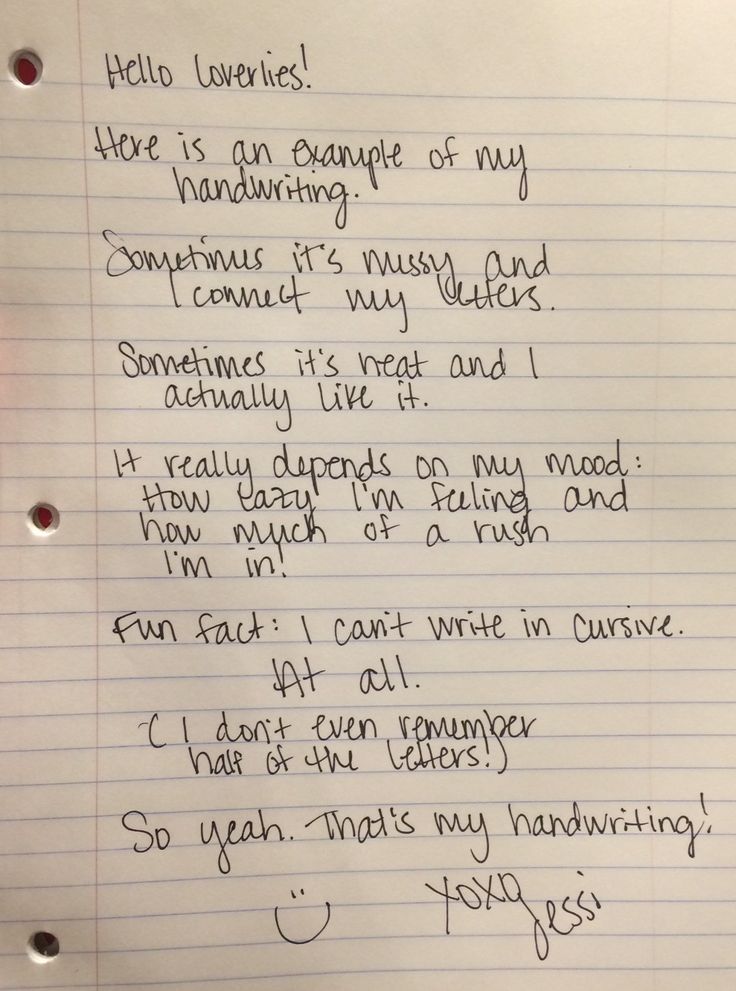 Hello loverlies!
Here is an example of my
handwriting.
Sometimes it's messy and
I connect my letters.
Sometimes it's neat and I
actually like it.
It really depends on my mood:
How lazy I'm feeling and
how much of a rush
I'm in!
Fun fact: I can't write in cursive.
At all.
(I don't even remember
half of the letters!)
So yeah. That's my handwriting!
xoxo
Jessi